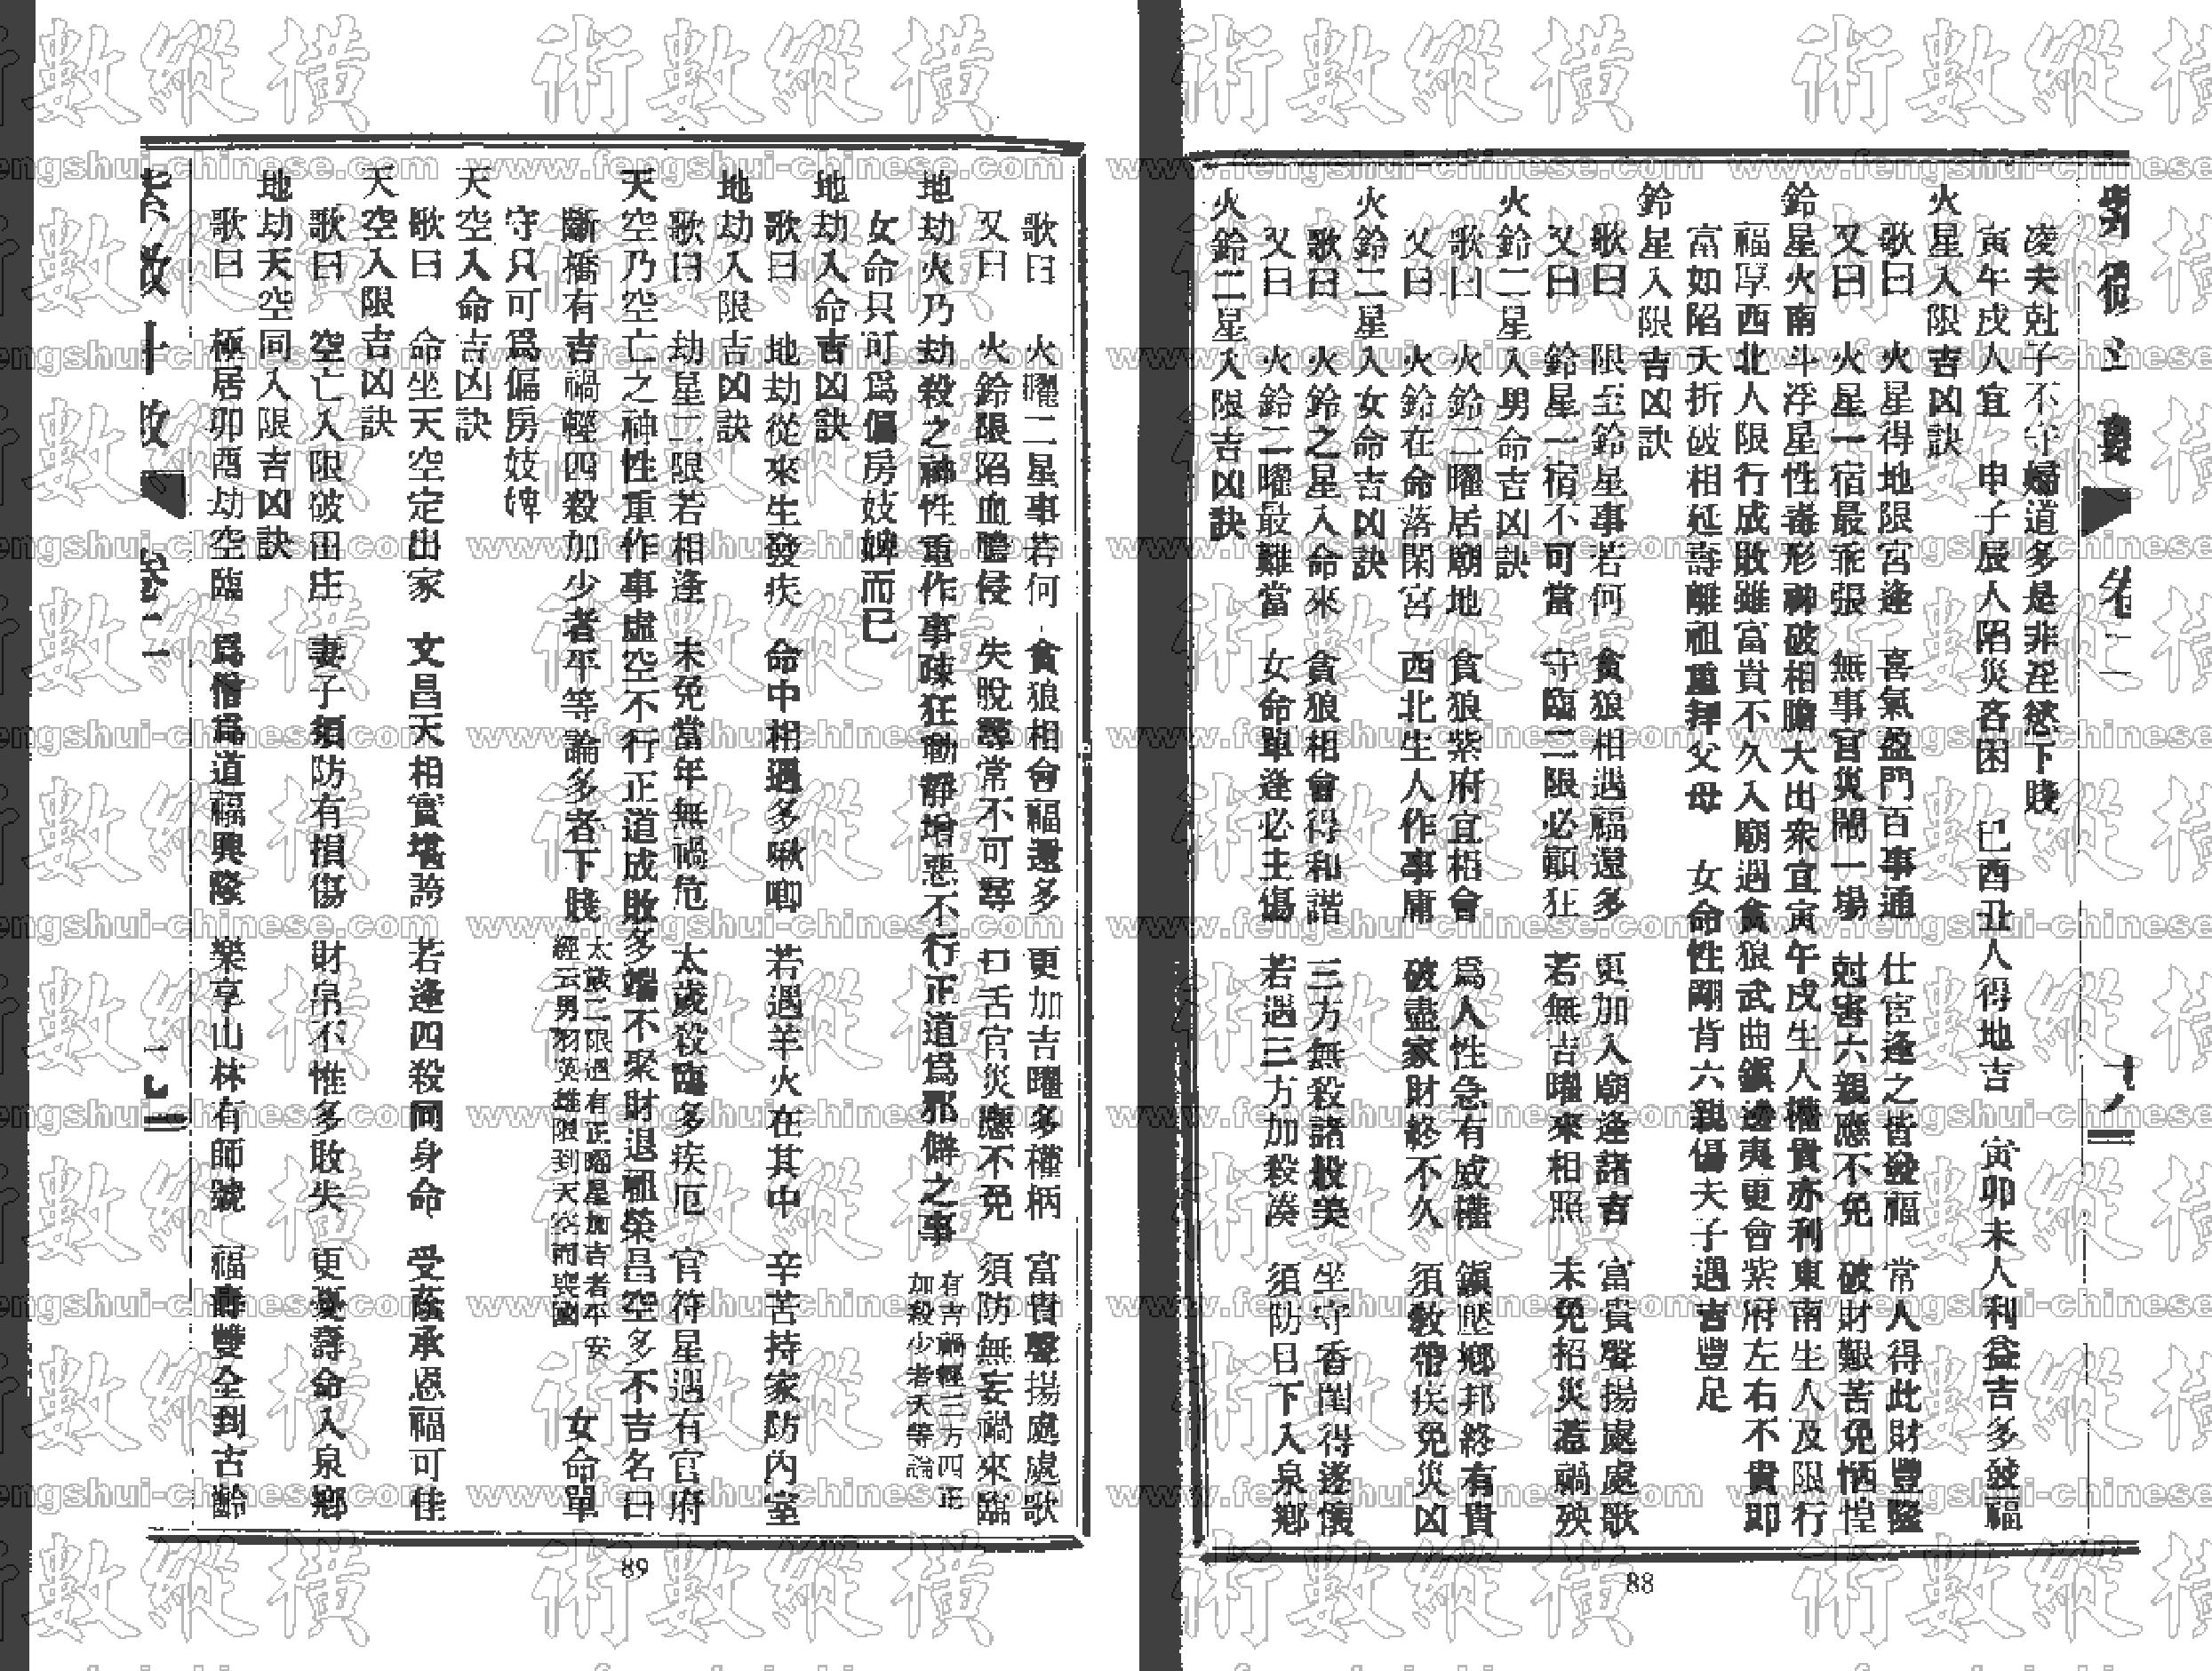 凌夫尅子不守婦道多是非淫慾下賤
寅午戌人宜　申子辰人陷災吝困　巳酉丑人得地吉　寅卯未人利益吉多發福
火星入限吉凶訣
歌曰　火星得地限宮逢　喜氣盈門百事通　仕宦逢之皆發福　常人得此財豐隆
又曰　火星一宿最乖張　無事官災鬧一場　尅害六親應不免　破財艱苦免恓惶
鈴星火南斗浮星性毒形神破相膽大出衆宜寅午戌生人權貴亦利東南生人及限行
福厚西北人限行成敗雖富貴不久入廟遇貪狼武曲鎮邊夷更會紫府左右不貴即
富如陷夭折破相延壽離祖重拜父母　女命性剛背六親傷夫子遇吉豐足
鈴星入限吉凶訣
歌曰　限至鈴星事若何　貪狼相遇福還多　更加入廟逢諸吉　富貴聲揚處處歌
又曰　鈴星一宿不可當　守臨二限必顛狂　若無吉曜來相照　未免招災惹禍殃
火鈴二星入男命吉凶訣
歌曰　火鈴二曜居廟地　貪狼紫府宜相會　爲人性急有威權　鎮壓鄉邦終有貴
又曰　火鈴在命落閑宮　西北生人作事庸　破盡家財終不久　須敎帶疾免災凶
火鈴二星入女命吉凶訣
歌曰　火鈴之星入命來　貪狼相會得和諧　三方無殺諸般美　坐守香閨得遂懷
又曰　火鈴二曜最難當　女命單逢必主傷　若遇三方加殺湊　須防目下入泉鄉
火鈴二星入限吉凶訣
88
歌曰　火曜二星事若何　貪狼相會福還多　更加吉曜多權柄　富貴聲揚處處歌
又曰　火鈴限陷血膿侵　失脫尋常不可尋　口舌官災應不免　須防無妄禍來臨
地劫火乃劫殺之神性重作事疎狂動靜增惡不行正道爲邪僻之事　有吉禍輕三方四正加殺少者夭等論
女命只可爲偏房妓婢而已
地劫入命吉凶訣
歌曰　地劫從來生發疾　命中相遇多啾唧　若遇羊火在其中　辛苦持家防內室
地劫入限吉凶訣
歌曰　劫星二限若相逢　未免當年無禍危　太歲殺臨多疾厄　官符星遇有官府
天空乃空亡之神性重作事虛空不行正道成敗多端不聚財退祖榮昌空多不吉名曰
斷橋有吉禍輕四殺加少者平等論多者下賤　太歲二限遇有正曜星加吉者平安　經云男羽英雄限到天空而喪國　女命單
守只可爲偏房妓婢
天空入命吉凶訣
歌曰　命坐天空定出家　文昌天相實堪誇　若逢四殺同身命　受蔭承恩福可佳
天空入限吉凶訣
歌曰　空亡入限破田庄　妻子須防有損傷　財帛不惟多敗失　更憂壽命入泉鄉
地劫天空同入限吉凶訣
歌曰　極居卯酉劫空臨　爲僧爲道福興隆　樂享山林有師號　福壽雙全到古齡
89
術數縱橫
www.fengshui-chinese.com